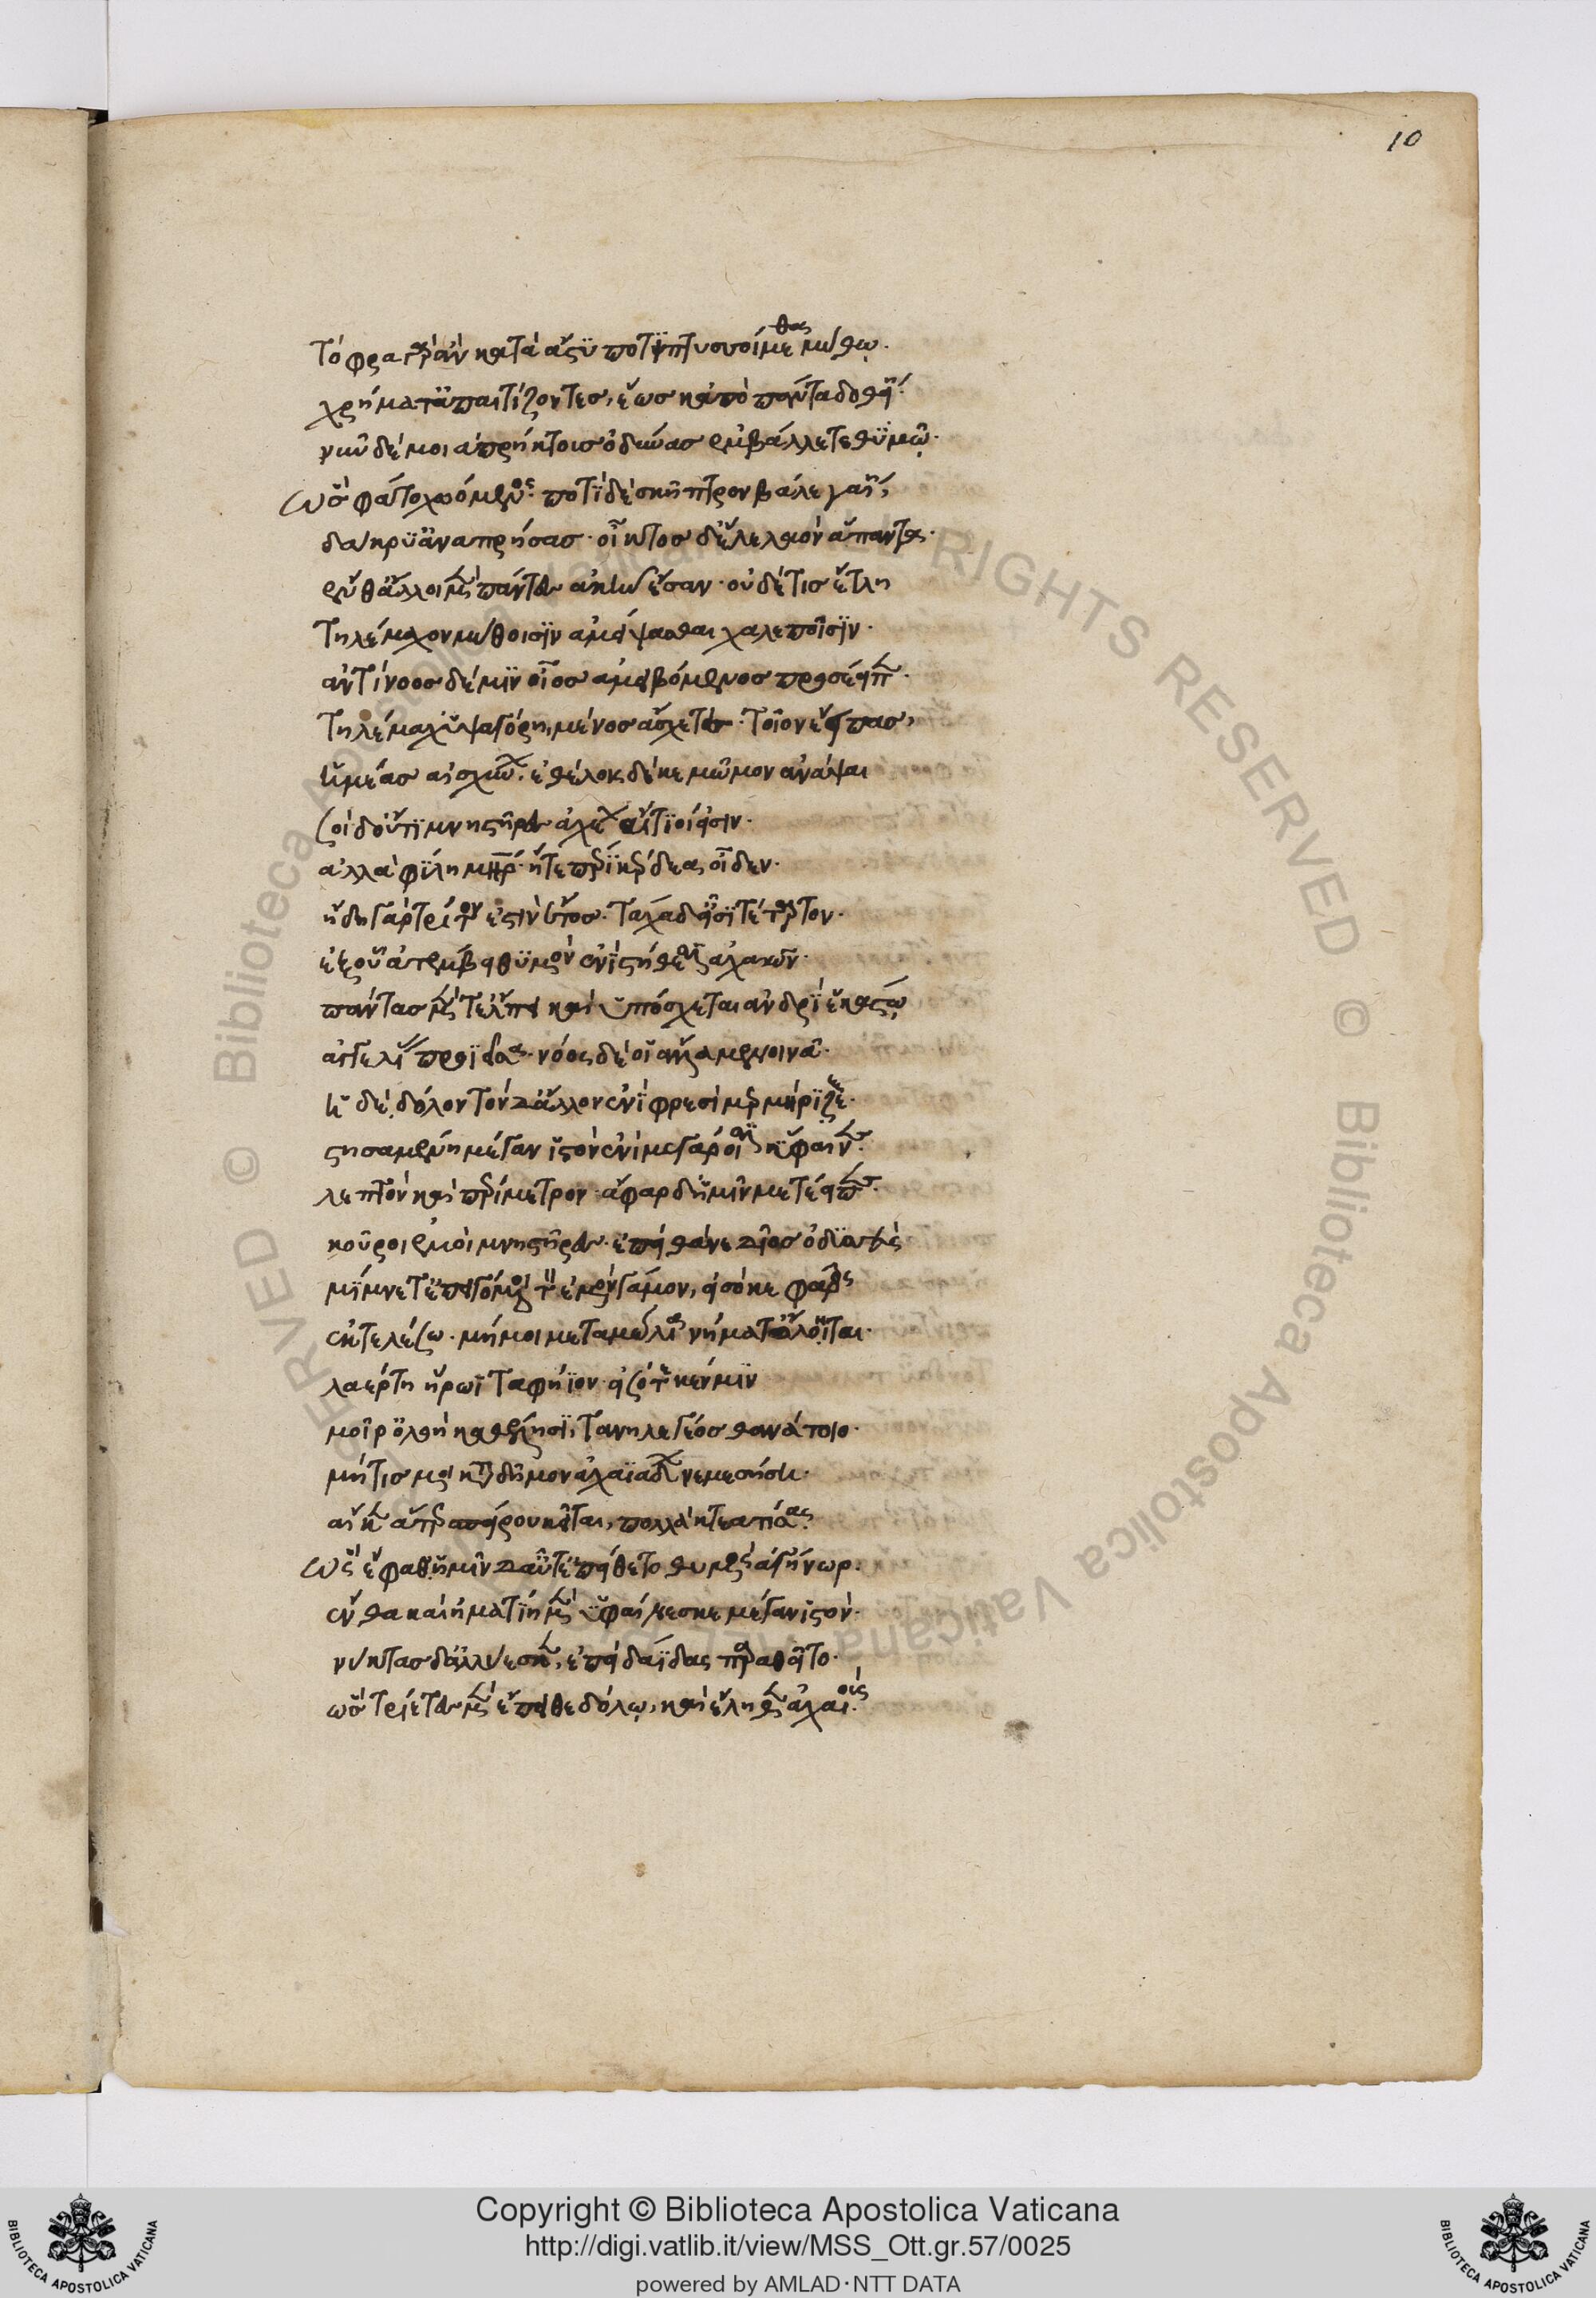 10
τόφρα γὰρ ἂν κατὰ ἄστϋ ποτϊπτυσσοίμεθα μύθῳ.
χρήματ' ἀπαιτίζοντες, ἕως κ' ἀπὸ πάντα δοθῇ.
νῦν δέ μοι ἀπρήκτοις ὀδύνας ἐμβάλλετε θϋμῷ.
ὣς φάτο χωόμενος. ποτὶ δὲ σκῆπτρον βάλε γαίῃ,
δάκρϋ' ἀναπρήσας. οἶκτος δ' ἕλε λαὸν ἅπαντα.
ἔνθ' ἄλλοι μὲν πάντες ἀκὴν ἔσαν. οὐδέ τις ἔτλη
Τηλέμαχον μύθοισϊν ἀμείψασθαι χαλεποῖσϊν.
ἀντίνοος δέ μϊν οἶος ἀμειβόμενος προσέειπεν.
Τηλέμαχ' ὑψαγόρη, μένος ἄσχετε. τοῖον ἔειπας,
ἡμέας αἰσχύνων. ἐθέλοις δέ κε μῶμον ἀνάψαι
σοὶ δ' οὔτϊ μνηστῆρες ἀχαιῶν αἴτϊοί εἰσιν.
ἀλλὰ φίλη μήτηρ. ἥ τε πέρϊ κέρδεα οἶδεν.
ἤδη γὰρ τρίτον ἐστὶν ἔτος. τάχα δ' εἶσϊ τέταρτον.
ἐξ οὗ ἀτέμβει θϋμὸν ἐνὶ στήθεσσιν ἀχαιῶν.
πάντας μέν τ' ἔλπει καὶ ὑπόσχεται ἀνδρϊ ἑκάστῳ
ἀγγελίας προϊεῖσα. νόος δέ οἱ ἄλλα μενοινᾷ.
ἡ δὲ δόλον τόνδ' ἄλλον ἐνὶ φρεσὶ μερμήριξε.
στησαμένη μέγαν ἱστὸν ἐνὶ μεγάροισιν ὕφαινεν.
λεπτὸν καὶ περίμετρον. ἄφαρ δ' ἡμῖν μετέειπεν.
κοῦροι ἐμοὶ μνηστῆρες. ἐπεὶ θάνε δῖος ὀδϋσσεὺς
μίμνετ' ἐπειγόμενοι τὸν ἐμὸν γάμον, εἰσόκε φᾶρος
ἐκτελέσω. μή μοι μεταμώλια νήματ' ὄληται.
λαέρτῃ ἥρωϊ ταφήϊον. εἰς ὅτε κέν μϊν
μοῖρ' ὀλοὴ καθέλῃσϊ, τανηλεγέος θανάτοιο.
μήτις μοι κατὰ δῆμον ἀχαϊάδων νεμεσήσῃ.
αἴ κεν ἄτερ σπείρου κεῖται, πολλὰ κτεατίσσας.
ὣς ἔφαθ'. ἡμῖν δ' αὖτ' ἐπεπείθετο θυμὸς ἀγήνωρ.
ἔνθα καὶ ἠματίη μὲν ὑφαίνεσκε μέγαν ἱστὸν.
νύκτας δ' ἀλλύεσκεν, ἐπεὶ δαΐδας παραθεῖτο.
ὣς τρίετες μὲν ἔπειθε δόλῳ, καὶ ἔληθεν ἀχαιούς.
Copyright © Biblioteca Apostolica Vaticana
http://digi.vatlib.it/view/MSS_Ott.gr.57/0025
powered by AMLAD·NTT DATA